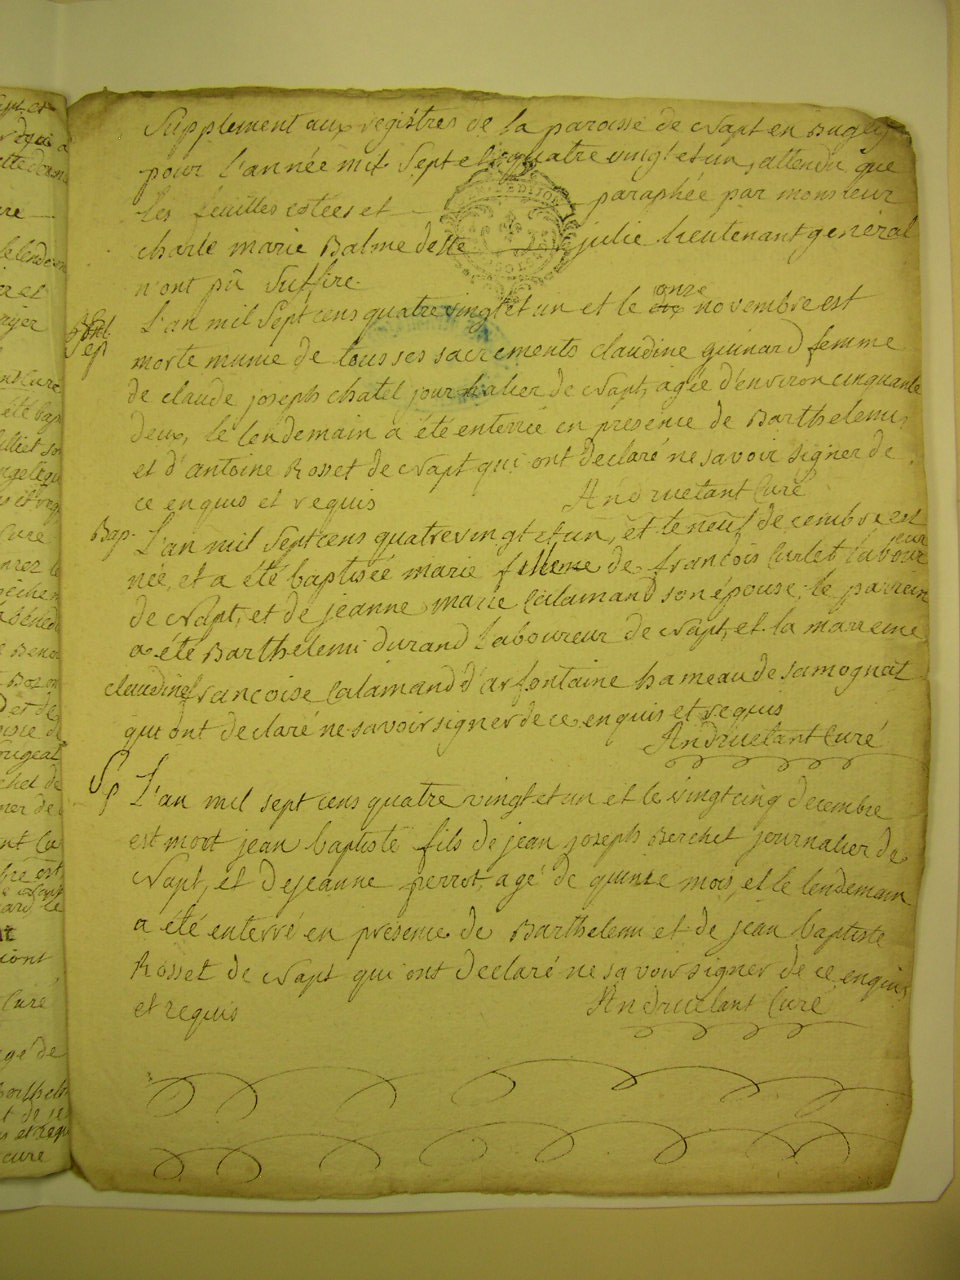 Supplement aux registres de la paroisse de Napt en Bugey
pour l'année mil Sept cens quatre vingt et un, attendu que
les feuilles cotées et paraphée par monsieur
charle marie Balme de Ste julie lieutenant general
n'ont pû Suffire.
L'an mil Sept cens quatre vingt et un et le onze novembre est
Sep
morte munie de tous ses sacrements claudine guinard femme
de claude joseph chatel journalier de Napt, agée d'environ cinquante
deux, le lendemain a été enterrée en présence de Barthelemi
et d'antoine Rosset de Napt qui ont declaré ne savoir signer de
ce enquis et requis Andruetant Curé
Bap. L'an mil Sept cens quatre vingt et un, et le neuf decembre est
née, et a été baptisée marie fille de françois Curlet laboureur
de Napt, et de jeanne marie Calamand son épouse, le parrein
a été Barthelemi durand laboureur de Napt, et la marreine
claudine francoise Calamand d'arfontaine hameau de samognat
qui ont declaré ne savoir signer de ce enquis et requis
Andruetant Curé
Sp L'an mil sept cens quatre vingt et un et le vingt cinq decembre
est mort jean baptiste fils de jean joseph Berchet journalier de
Napt, et de jeanne perrot, agé de quinze mois, et le lendemain
a été enterré en présence de Barthelemi et de jean baptiste
Rosset de Napt qui ont declaré ne savoir signer de ce enquis
et requis Andruetant Curé